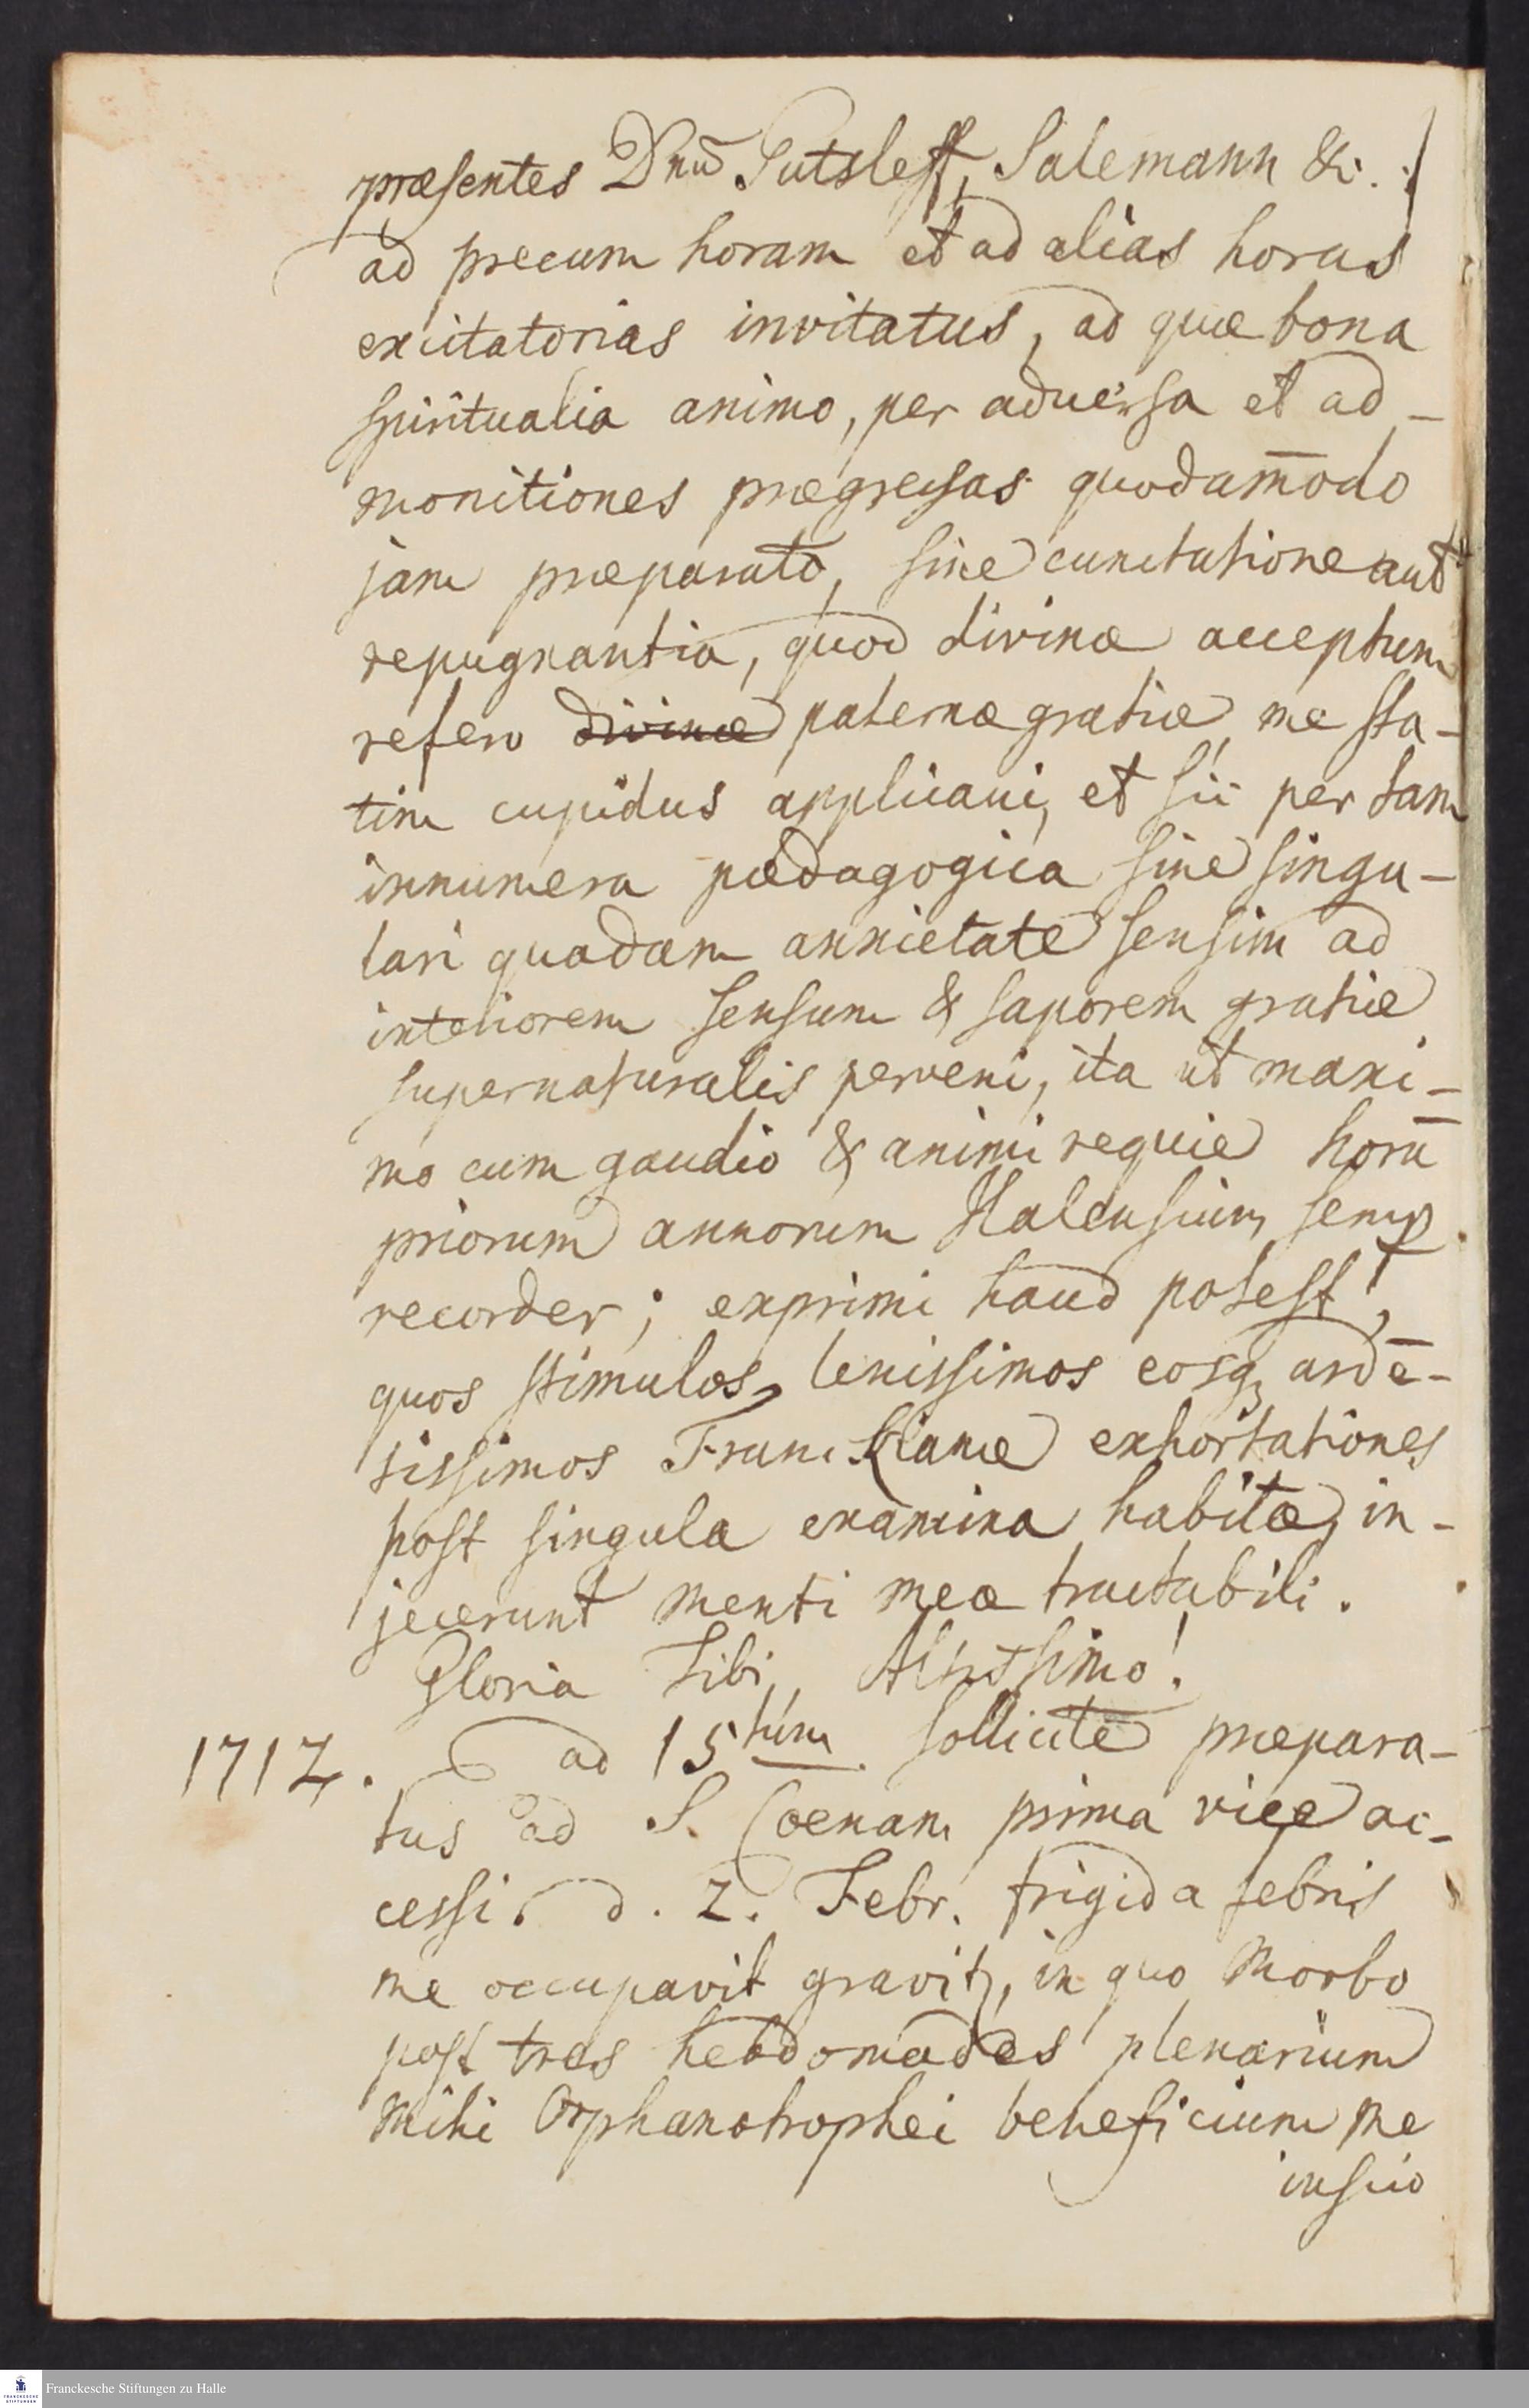 præsentes Dnū Gutsleff, Salemann &c. :/
ad precum horam et ad alias horas
excitatorias invitatus, ad quæ bona
spiritualia animo, per aduersa et ad-
monitiones prægressas quodam̄odo
jam præparato, sine cunctatione aut
repugnantia, quod divinæ acceptum
refero divinæ paternæ gratiæ me sta-
tim cupidus applicaui, et sic per tam
innumera pædagogica sine singu-
lari quadam anxietate sensim ad
interiorem sensum & saporem gratiæ
supernaturalis perveni, ita ut maxi-
mo cum gaudio & animi requie horū
priorum annorum Halensium semp
recorder; exprimi haud potest,
quos stimulos, lenissimos eosq; ardē-
tissimos Franckianæ exhortationes
post singula examina habitæ, in-
jecerunt menti meæ tractabili.
Gloria Tibi, Altissimo!
1712. ad 15tum sollicite præpara-
tus ad S. Coenam prima vice ac-
cessi. d. 2. Febr. frigida febris
me occupavit gravit, in quo morbo
post tres hebdomades plenarium
mihi Orphanotrophei beneficium me
inscio
Franckesche Stiftungen zu Halle